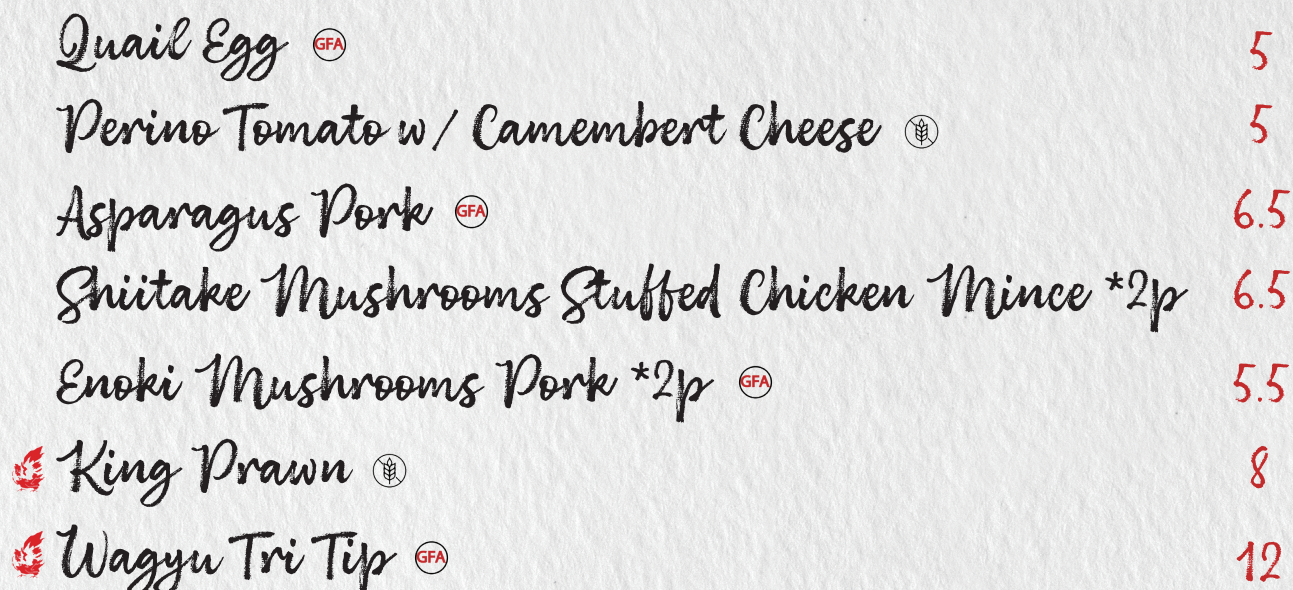 Quail Egg GFA 5
Perino Tomato w/ Camembert Cheese 5
Asparagus Pork GFA 6.5
Shiitake Mushrooms Stuffed Chicken Mince *2p 6.5
Enoki Mushrooms Pork *2p GFA 5.5
King Prawn 8
Wagyu Tri Tip GFA 12